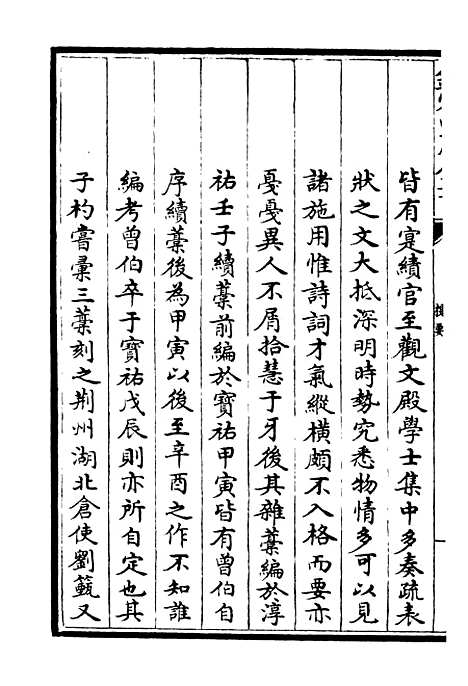 皆有寔績官至觀文殿學士集中多奏疏表
狀之文大抵深明時勢究悉物情多可以見
諸施用惟詩詞才氣縱横頗不入格而要亦
戞戞異人不屑拾慧于牙後其雜藁編於淳
祐壬子續藁前編於寳祐甲寅皆有曾伯自
序續藁後為甲寅以後至辛酉之作不知誰
編考曾伯卒于寳祐戊辰則亦所自定也其
子杓嘗彚三藁刻之荆州湖北倉使劉籈又
提要